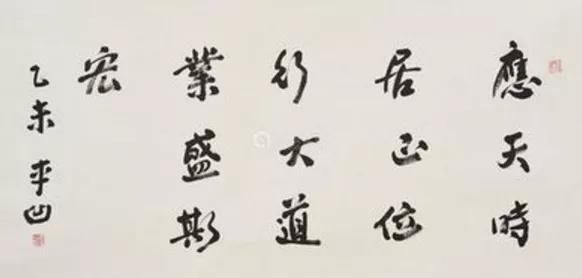 應天時
居正位
行大道
業盛斯
宏
乙未 平凹